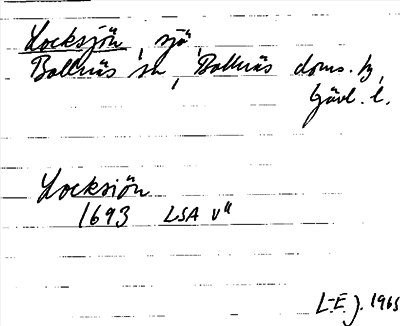 Locksjön, sjö,
Bollnäs sn, Bollnäs doms. hd,
Gävl. l.
Locksiön
1693 LSA V"
L-E. J. 1965